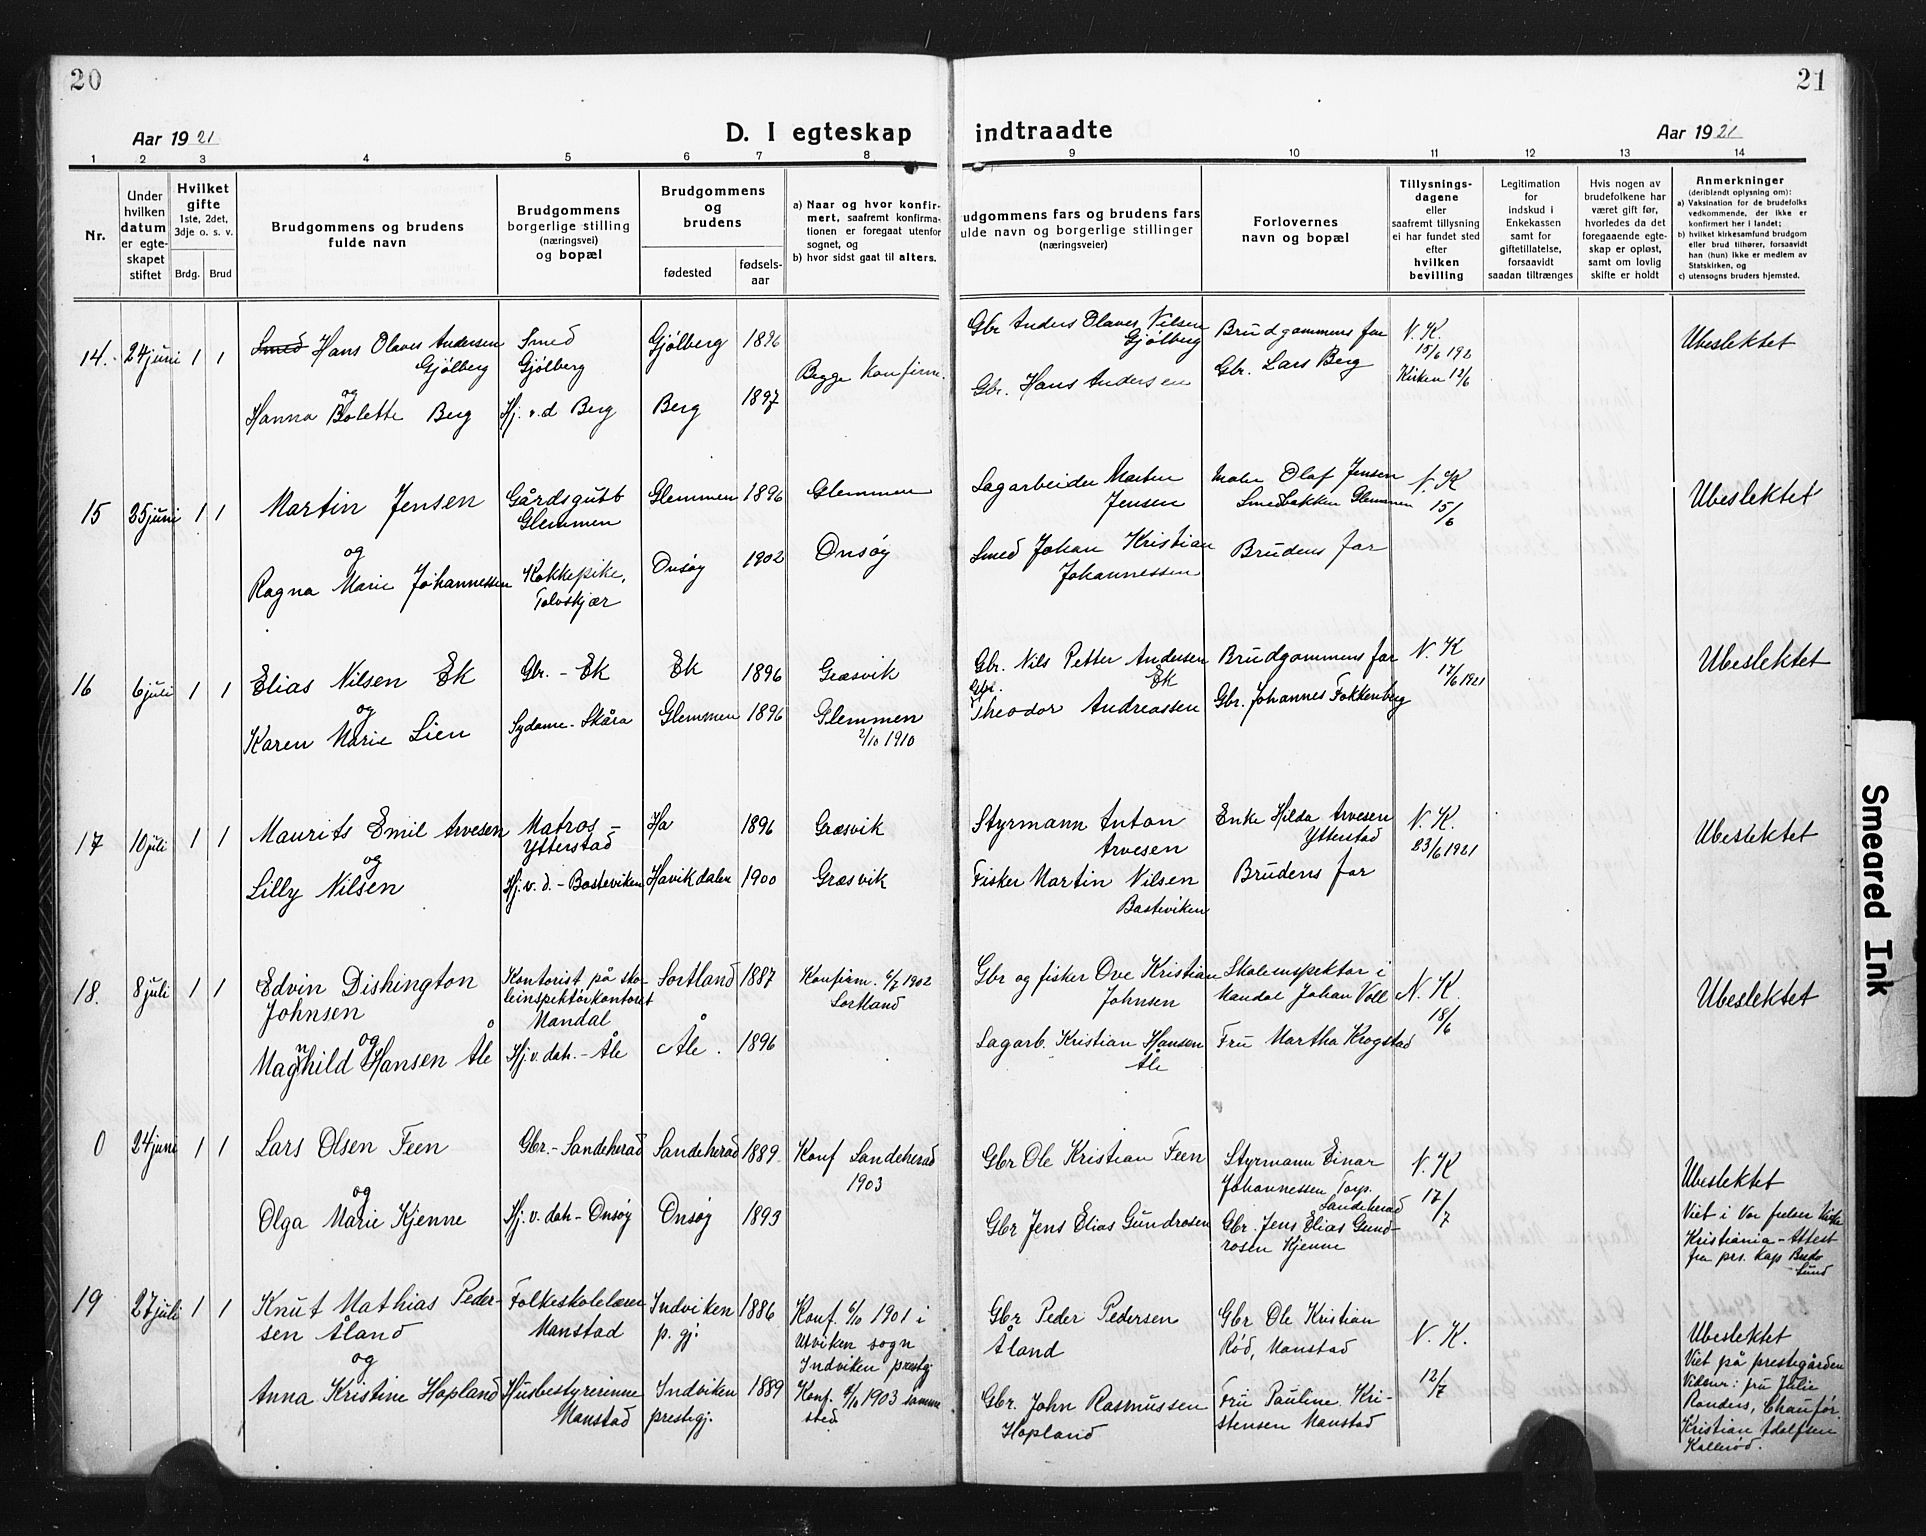 20
21
Aar 1921
D. I egteskap
indtraadte
Aar 1921
1 2 3 4 5 6 7 8 9 10 11 12 13 14
Nr.
Under hvilken datum er egte-skapet stiftet
Hvilket gifte
1ste, 2det, 3dje o. s. v.
Brdg. Brud
Brudgommens og brudens fulde navn
Brudgommens borgerlige stilling (næringsvei) og bopæl
Brudgommens og brudens
fødested
fødsels-aar
a) Naar og hvor konfir-mert, saafremt konfirma-tionen er foregaat utenfor sognet, og
b) hvor sidst gaat til alters.
udgommens fars og brudens fars
ulde navn og borgerlige stillinger
(næringsveier)
Forlovernes navn og bopæl
Tillysnings-dagene eller saafremt tillysning ei har fundet sted efter hvilken bevilling
Legitimation for indskud i Enkekassen samt for giftetillatelse, forsaavidt saadan tiltrænges
Hvis nogen av brudefolkene har været gift før, hvorledes da det foregaaende egte-skap er opløst, samt om lovlig skifte er holdt
Anmerkninger
(deriblandt oplysning om):
a) Vaksination for de brudefolks vedkommende, der ikke er konfirmert her i landet;
b) hvilket kirkesamfund brudgom eller brud tilhører, forsaavidt han (hun) ikke er medlem av Statskirken, og
c) utensogns bruders hjemsted.
14. 24 juni 1 1
Smed Hans Olaves Andersen
Gjølberg
og
Hanna Bolette Berg
Smed
Gjølberg
Hj. v. d Berg
Gjølberg 1896
Berg 1897
Begge Konfirm.
Gbr Anders Olaves Nilsen
Gjølberg
Gbr. Hans Andersen
Brudgommens far
Gbr. Lars Berg
N. K.
15/6 192
Kirken 12/6
Ubeslektet
15 25 juni 1 1
Martin Jensen
og
Ragna Marie Johannessen
Gårdsgutt
Glemmen
Kokkepike,
Glemmen 1896
Onsøy 1902
Glemmen
Onsøy
Sagarbeider Marten
Jensen
Smed Johan Kristian
Johannessen
Maler Olaf Jensen
Smedbakken Glemmen
Brudens far
N. K
15/6
Ubeslektet
16 6 juli 1 1
Elias Nilsen Ek
og
Karen Marie Lien
Gbr. - Ek
Sydame - Skåra
Ek 1896
Glemmen 1896
Græsvik
Glemmen
2/10 1910
Gbr. Nils Petter Andersen
Ek
Gbr.
Theodor Andreassen
Brudgommens far
Gbr. Johannes Fokkenberg
N. K
17/6 1921
Ubeslektet
17 10 juli 1 1
Maurits Emil Arvesen
og
Lilly Nilsen
Matros -
Ytterstad
Hj. v. d. - Basteviken
Ha 1896
Havikdalen 1900
Græsvik
Græsvik
Styrmann Anton
Arvesen
Fisker Martin Nilsen
Basteviken
Enke Hilda Arvesen
Ytterstad
Brudens far
N. K.
23/6 1921
Ubeslektet
18. 8 juli 1 1
Edvin Dishington
Johnsen
og
Magnhild Hansen Åle
Kontorist på sko-
leinspektørkontoret
Mandal
Hj. v. dah. - Åle
Sortland 1887
Åle. 1896
Konfirm. 6/7 1902
Sortland
Gbr og fisker Ove Kristian
Johnsen
Sagarb. Kristian Hansen
Åle
Skoleinspektør i
Mandal Johan Voll
Fru Martha Krogstad
N. K.
18/6
Ubeslektet
0 24 juni 1 1
Lars Olsen Feen
og
Olga Marie Kjenne
Gbr. - Sandeherad
Hj. v. dah - Onsøy
Sandeherad 1889
Onsøy 1893
Konf Sandeherad
1903
Gbr Ole Kristian Feen
Gbr Jens Elias Gundrosen
Styrmann Einar
Johannessen Torp.
Sandeherad
Gbr. Jens Elias Gund-
rosen Kjenne
N. K
17/7
Ubeslektet
Viet i Vor frelser Kirke
Kristiania - Attest
fra prs. kap
19 27 juli 1 1
Knut Mathias Peder-
sen Åland
og
Anna Kristine Hopland
Folkeskolelærer
Manstad
Husbestyrerinne
Manstad
Indviken 1886
p. gj.
Indviken 1889
prestegj.
Konf. 6/10 1901 i
Utviken sogn
Indviken prestgj
Konf. 4/10 1903 samme
sted
Gbr Peder Pedersen
Åland
Gbr. John Rasmussen
Hopland
Gbr Ole Kristian
Rød, Manstad
Fru Pauline Kri-
stensen Manstad
N. K.
12/7
Ubeslektet
Viet på prestegården
Vidner: fru Julie
Randers, Chaufør
Kristian Adolfsen
Kallerød.
Smeared Ink